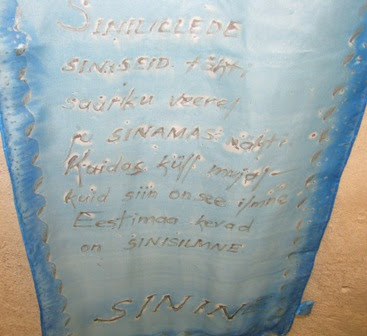 SINILILLEDE
SINISEID tähti
saariku veerel
ja SINAMAS nähti
Kaidas küll mujal-
kuid siin on see ilmne
Eestimaa kevad
on SINISILMNE
SININE